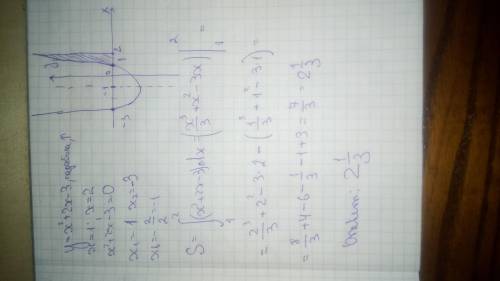 y=x²+2x-3, парабола, ↑
x=1; x=2
x²+2x-3=0
x₁=1 x₂=-3
x₀=-2/2=-1
S=∫₁²(x²+2x-3)dx=(x³/3+x²-3x)|₁²=
=2³/3+2²-3·2-(1³/3+1²-3·1)=
=8/3+4-6-1/3-1+3=7/3=2 1/3
Ответ: 2 1/3
y
x
-3
-1
0
1
2